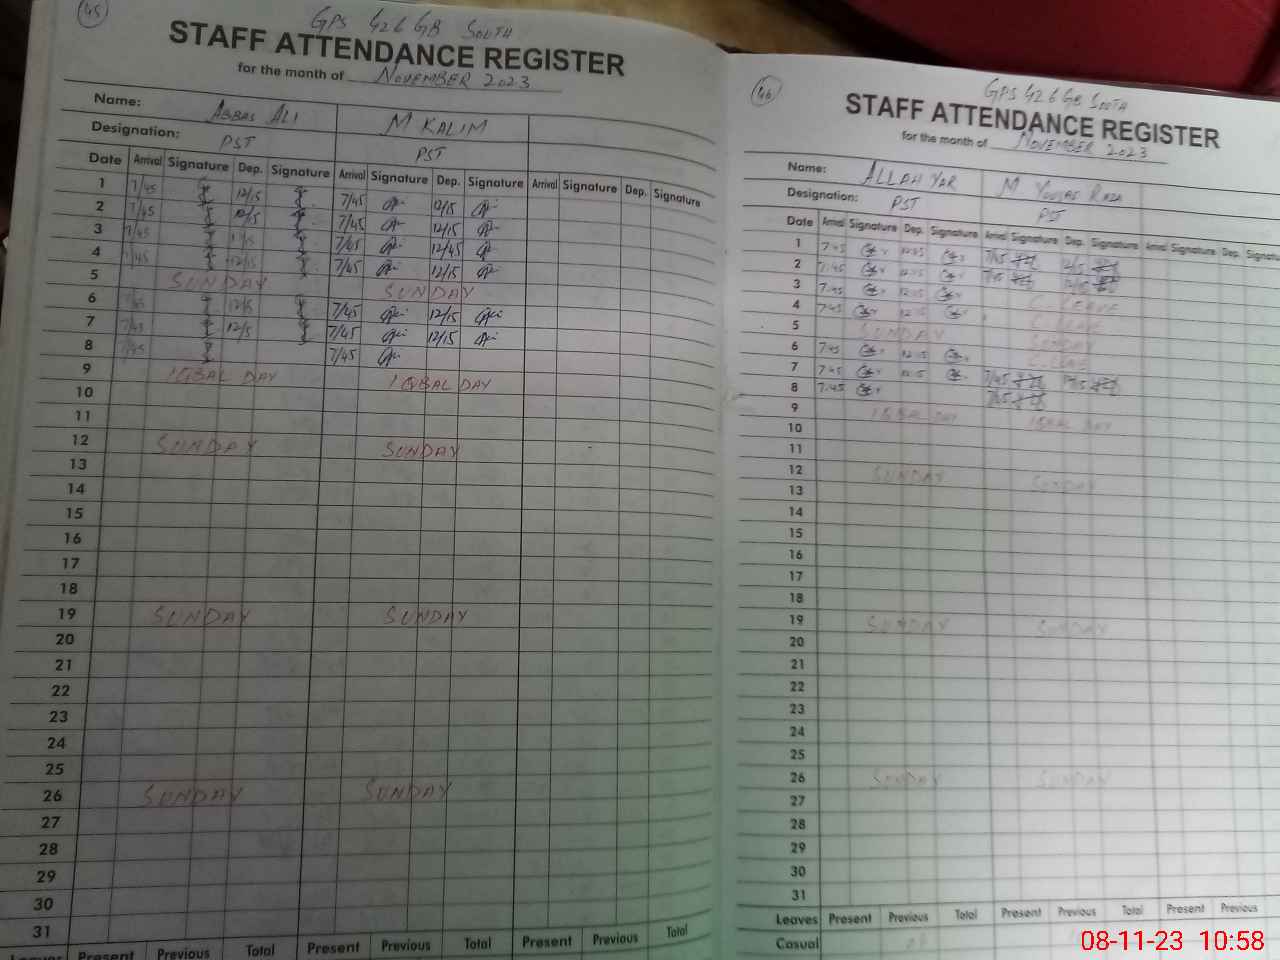 45
GPS 426 GB SOUTH
STAFF ATTENDANCE REGISTER
for the month of NOVEMBER 2023
Name: ABBAS ALI M KALIM
Designation: PST PST
Date Arrival Signature Dep. Signature Arrival Signature Dep. Signature Arrival Signature Dep. Signature
1 7/45 12/15 7/45 12/15
2 7/45 12/15 7/45 12/15
3 7/45 12/15 7/45 12/45
4 7/45 12/15 7/45 12/15
5 SUNDAY SUNDAY
6 7/45 12/15 7/45 12/15
7 7/45 12/15 7/45 12/15
8 7/45 7/45
9 IQBAL DAY IQBAL DAY
10
11
12 SUNDAY SUNDAY
13
14
15
16
17
18
19 SUNDAY SUNDAY
20
21
22
23
24
25
26 SUNDAY SUNDAY
27
28
29
30
31
Leaves Present Previous Total Present Previous Total Present Previous Total
46
GPS 426 GB SOUTH
STAFF ATTENDANCE REGISTER
for the month of NOVEMBER 2023
Name: ALLAH YAR M YOUNAS RAZA
Designation: PST PST
Date Arrival Signature Dep. Signature Arrival Signature Dep. Signature Arrival Signature Dep. Signature
1 7:45 12:15 7/45 12/15
2 7:45 12:15 7/45 12/15
3 7:45 12:15 C. LEAVE
4 7:45 12:15 C. LEAVE
5 SUNDAY SUNDAY
6 7:45 12:15 C. LEAVE
7 7:45 12:15 7/45 12/15
8 7:45 7/45
9 IQBAL DAY IQBAL DAY
10
11
12 SUNDAY SUNDAY
13
14
15
16
17
18
19 SUNDAY SUNDAY
20
21
22
23
24
25
26 SUNDAY SUNDAY
27
28
29
30
31
Leaves Present Previous Total Present Previous Total Present Previous
Casual
08-11-23 10:58